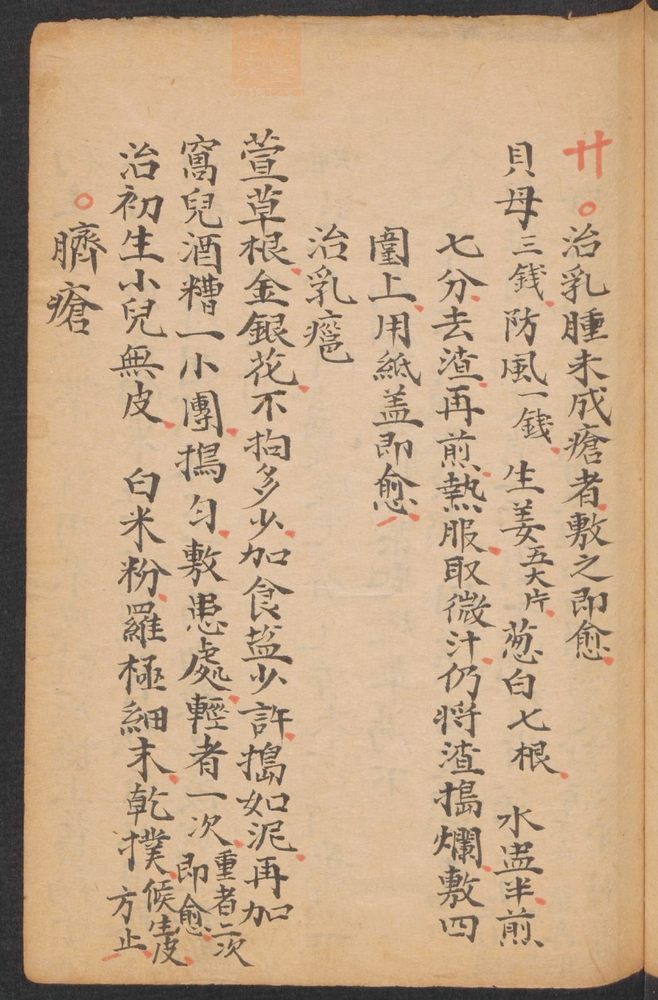 廿。治乳腫未成瘡者敷之即愈
貝母三錢防風一錢生姜五大片葱白七根 水盅半煎
七分去渣再煎熱服取微汁仍將渣搗爛敷四
圍上用紙盖即愈
治乳癰
萱草根金銀花不拘多少加食盐少許搗如泥再加
窩兒酒糟一小團搗匀敷患處輕者一次即愈重者二次
治初生小兒無皮 白米粉羅極細末乾撲候生皮方止
。臍瘡